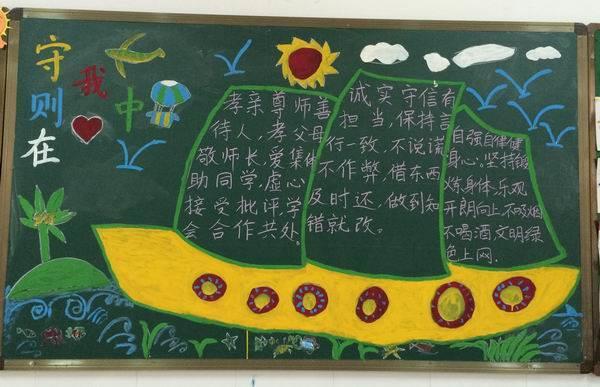 守则在
我
中
孝亲尊师善
待人,孝父母
敬师长,爱集体
助同学,虚心
接受批评,学
会合作共处。
诚实守信有
担当,保持言
行一致,不说谎
不作弊,借东西
及时还,做到知
错就改。
自强自律健
身心。坚持锻
炼身体,乐观
开朗向上,不吸烟
不喝酒,文明绿
色上网.